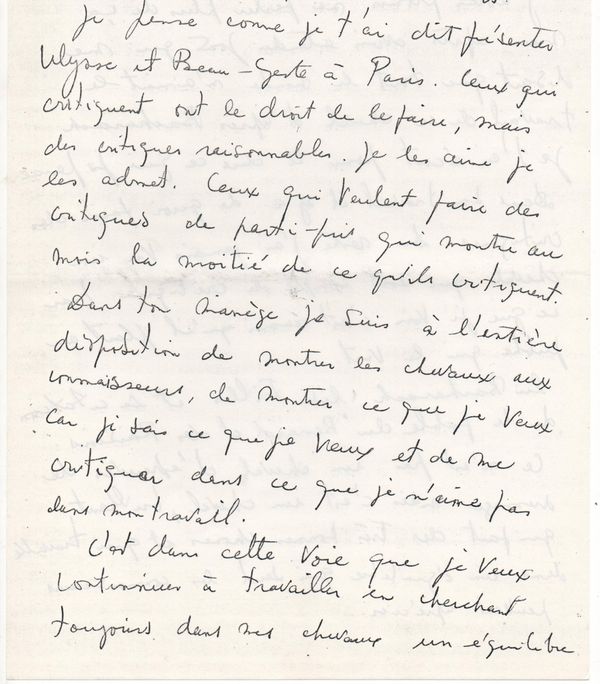 je pense comme je t'ai dit présenter
Ulysse et Beau-Geste à Paris. Ceux qui
critiquent ont le droit de le faire, mais
des critiques raisonnables. Je les aime je
les admet. Ceux qui veulent faire des
critiques de parti-pris qui montre au
mois la moitié de ce qu'ils critiquent.
Dans ton manège je suis à l'entière
disposition de montrer les chevaux aux
connaisseurs, de montrer ce que je veux
car je sais ce que je veux et de me
critiquer dans ce que je n'aime pas
dans mon travail.
C'est dans cette voie que je veux
continuer à travailler en cherchant
toujours dans mes chevaux un équilibre